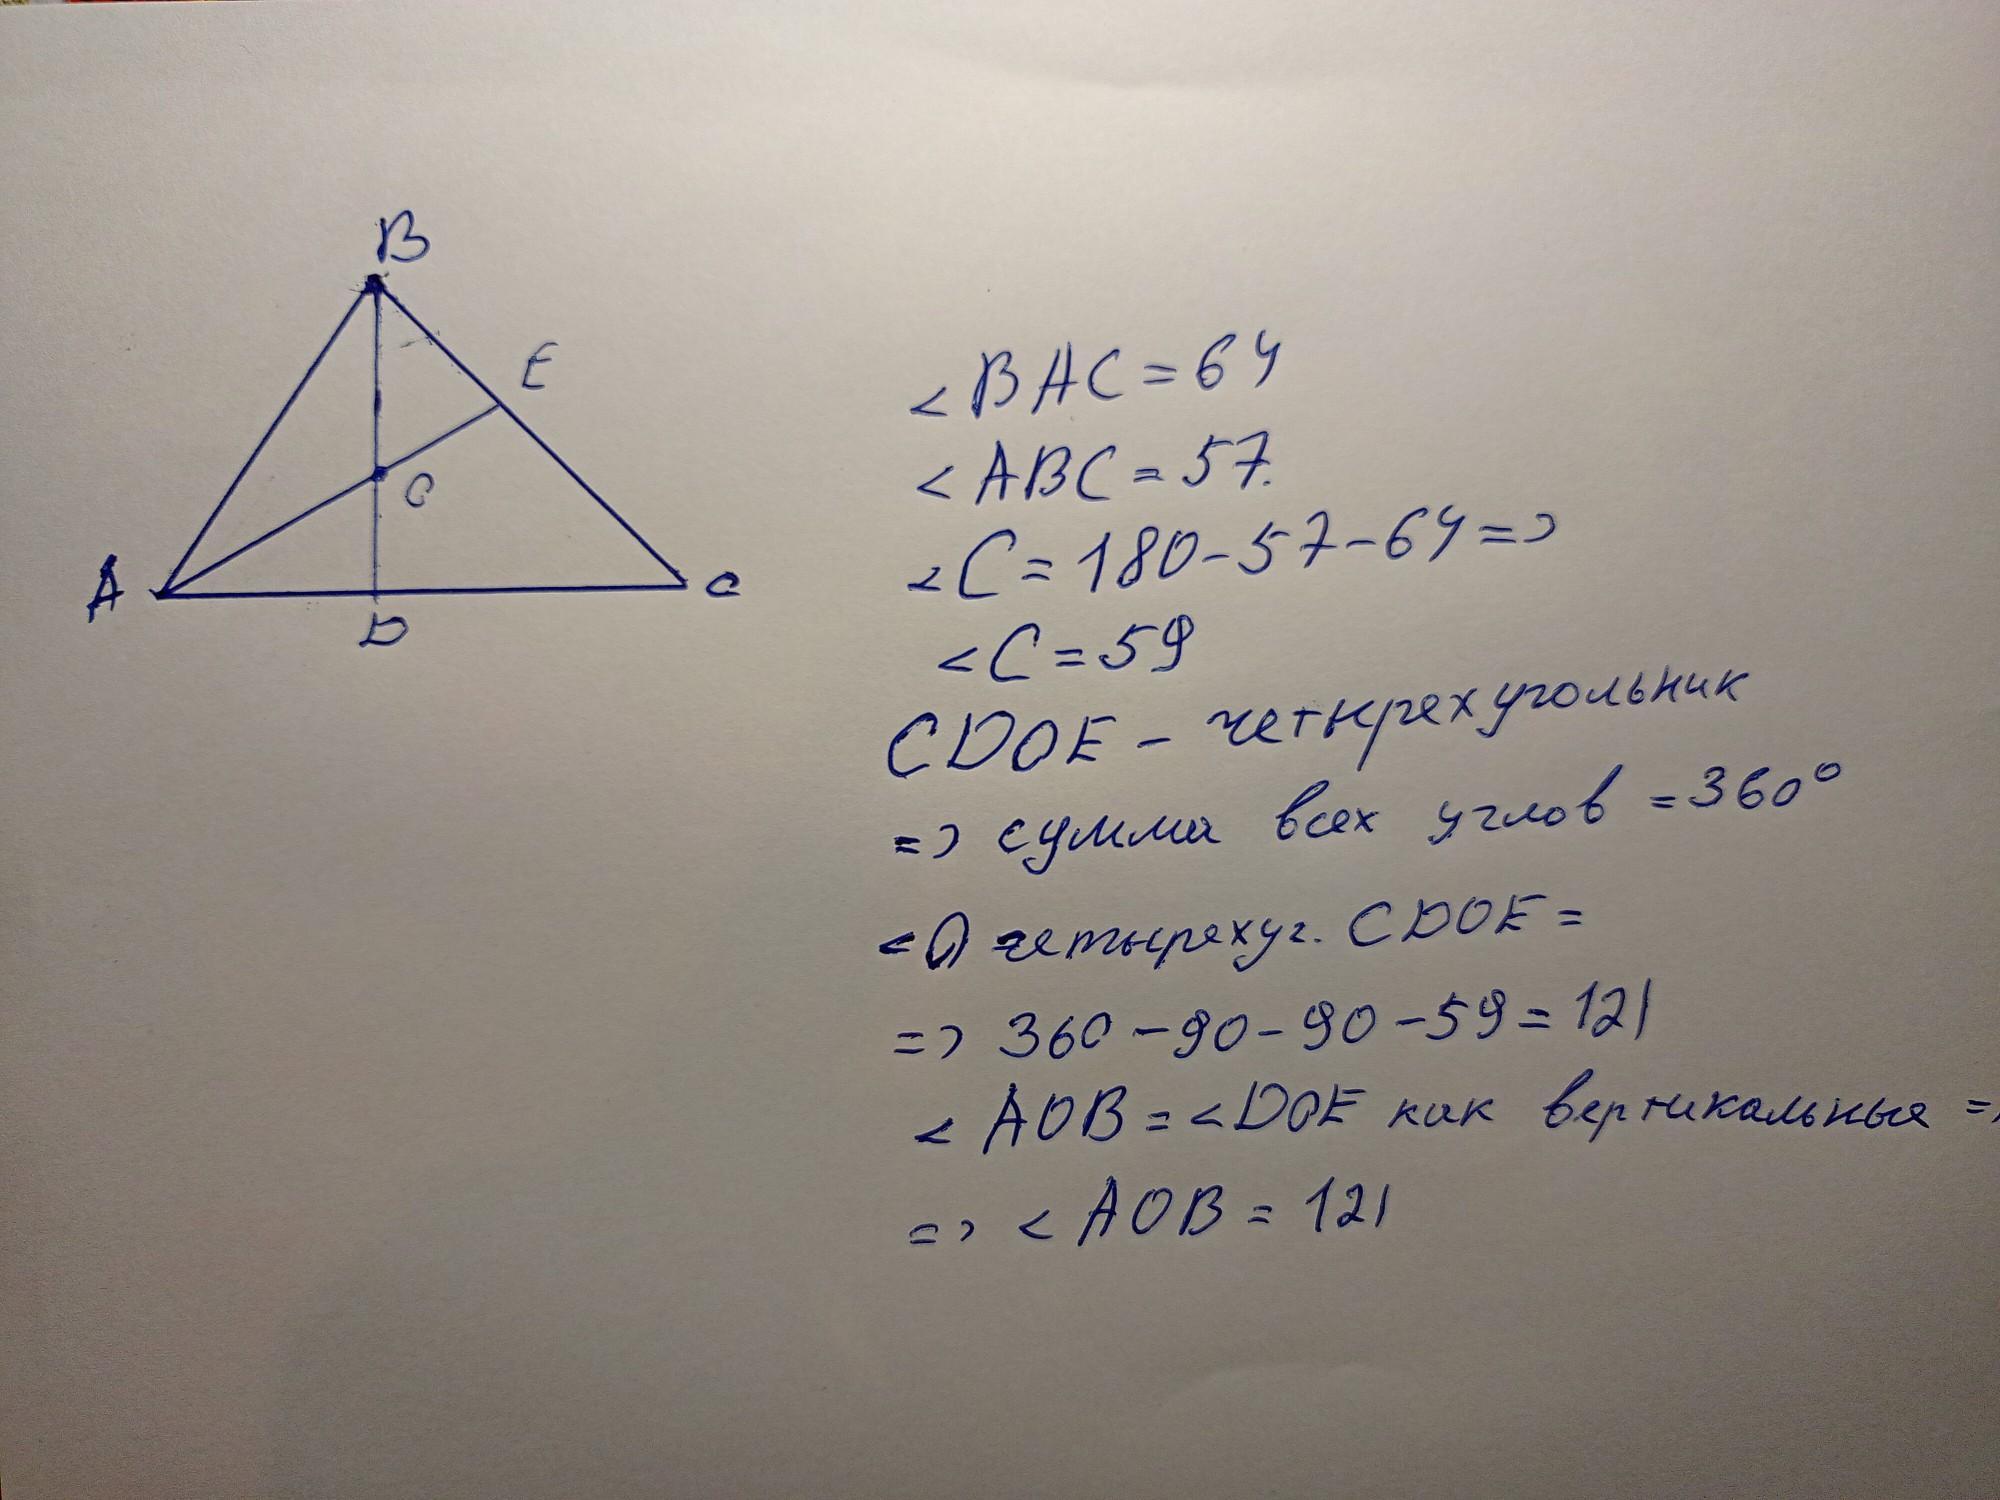 B
E
O
A
C
D
<BAC=64
<ABC=57.
<C=180-57-64=>
<C=59
CDOE - четырехугольник
=> сумма всех углов =360°
<O четырехуг. CDOE=
=> 360-90-90-59=121
<AOB=<DOE как вертикальные =>
=> <AOB=121